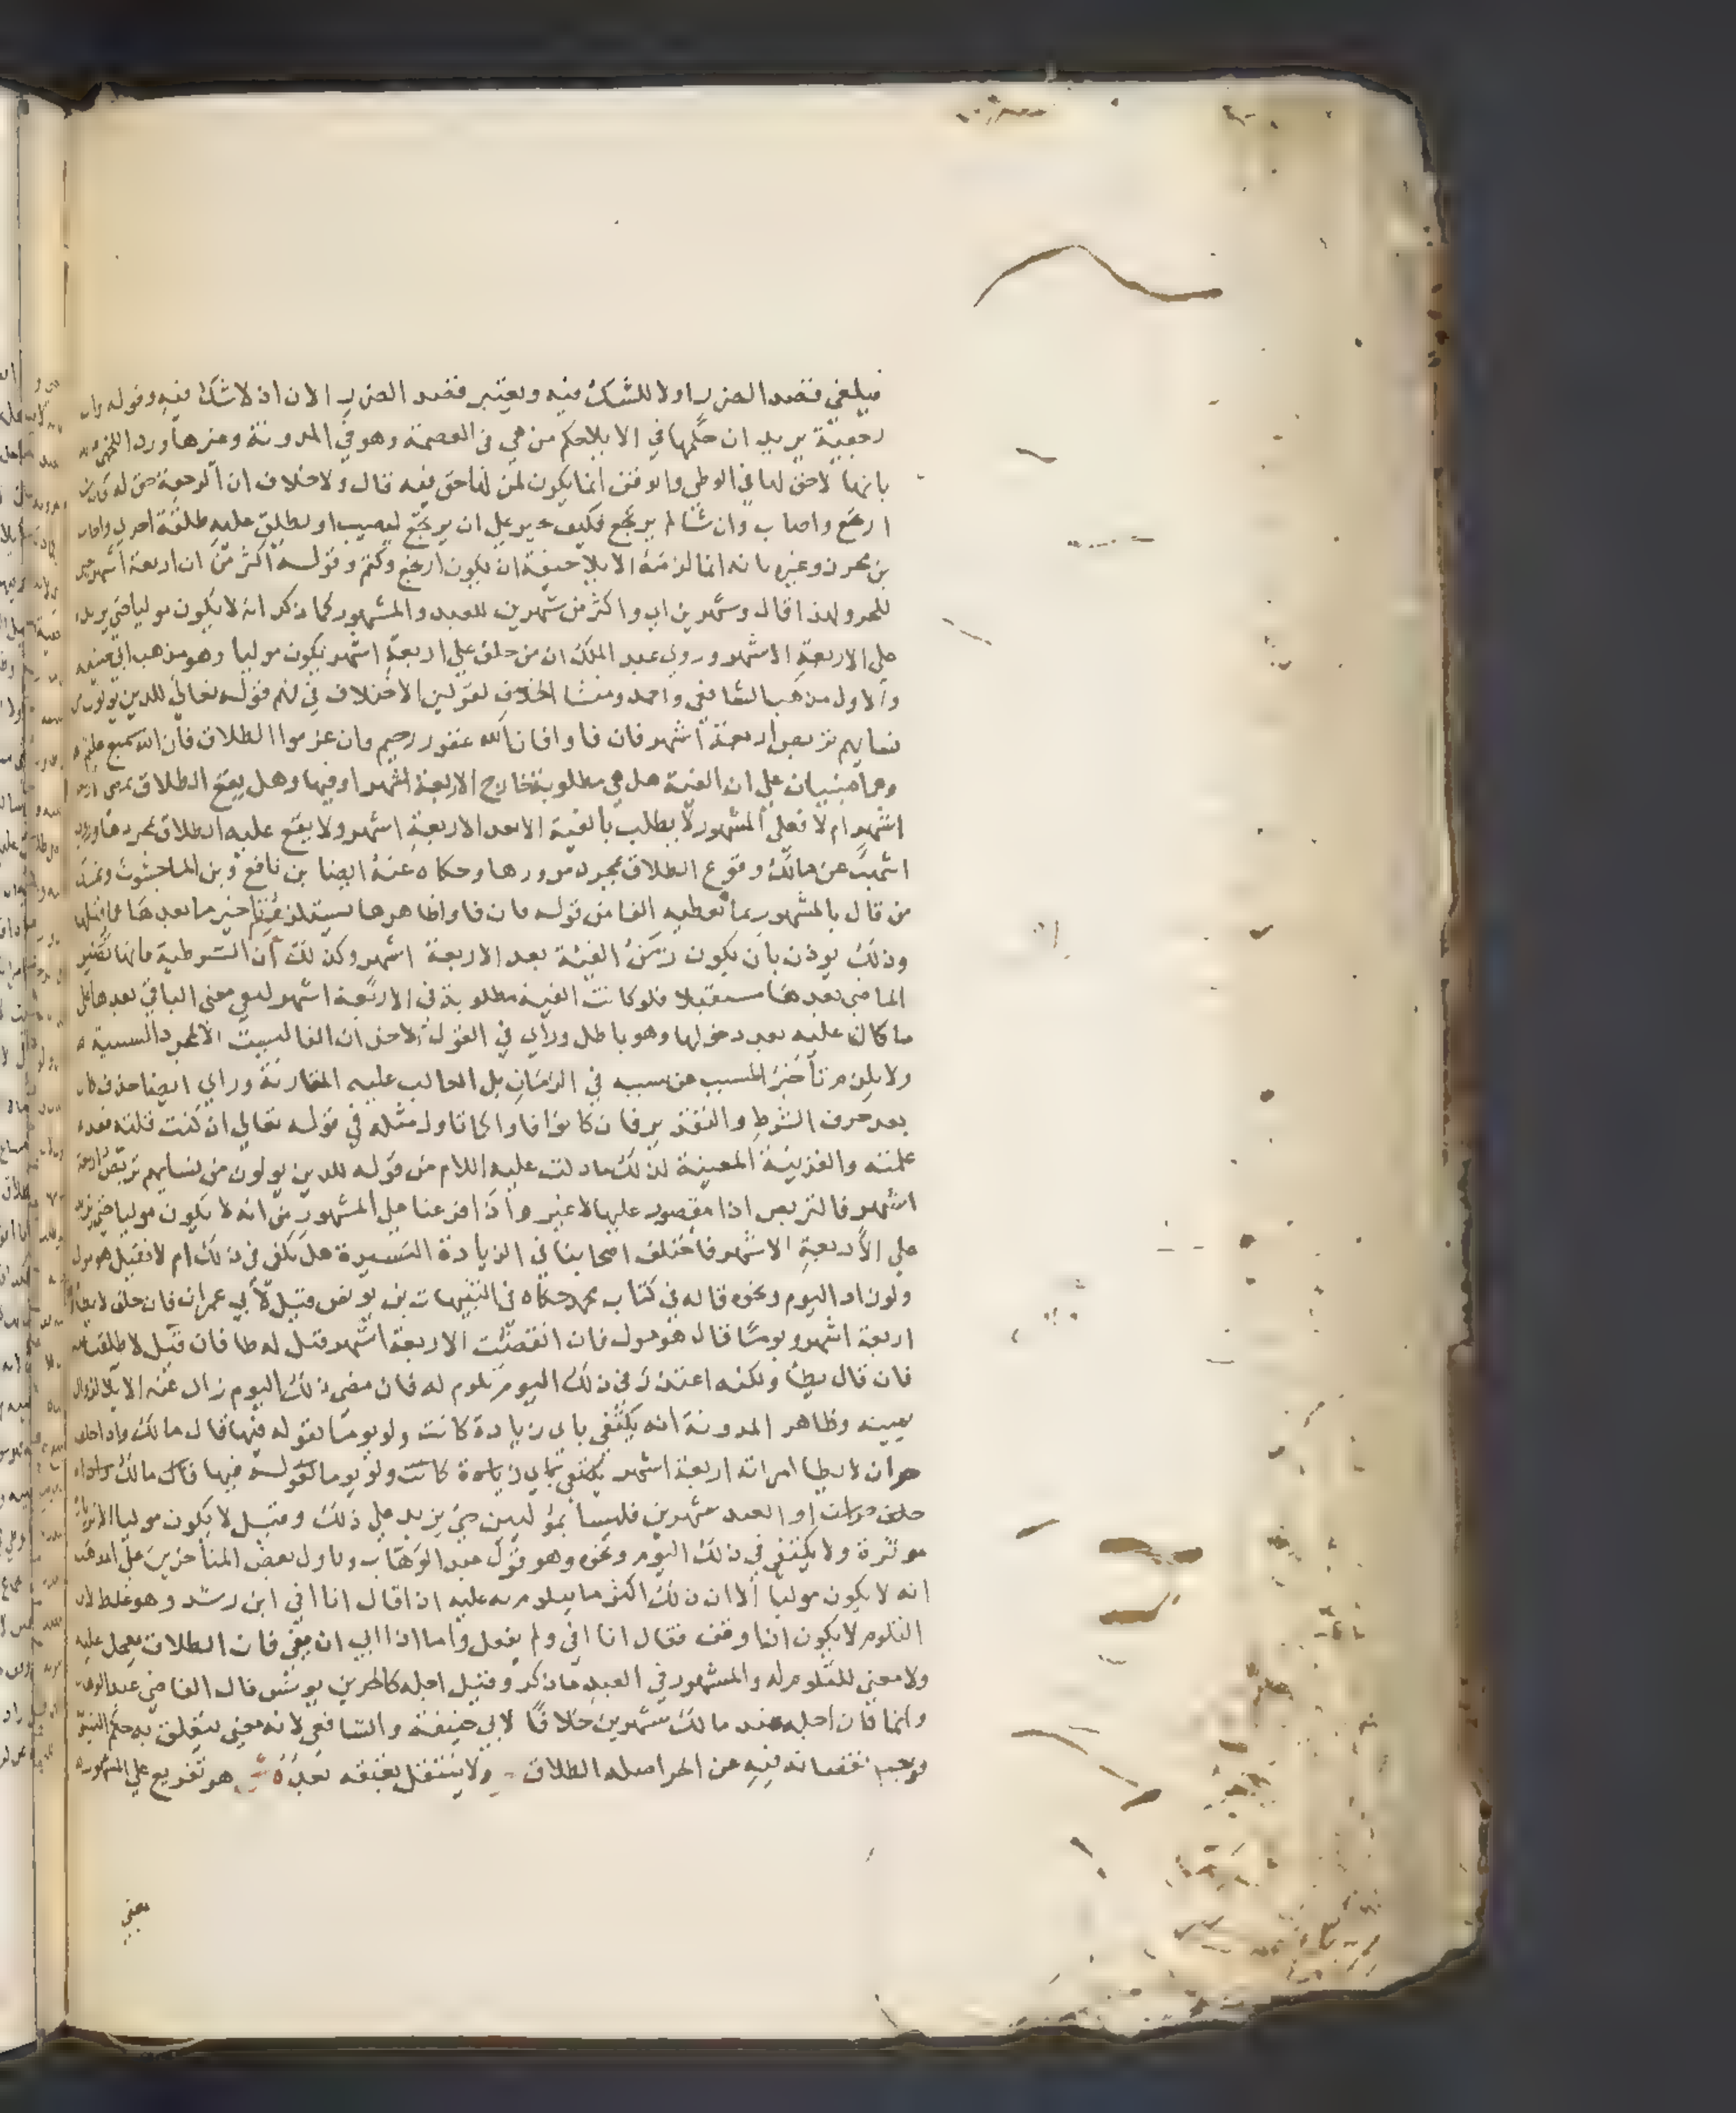 فيلغي قصد الضرر اولا للشك فيه ويعتبر قصد الضرر الان اذ لا شك فيه وقوله وان
رجعية يريد ان حكمها في الايلا حكم من هي في العصمة وهو في المدونة وغيرها ورد اللخمي
بانها لا حق لها في الوطي والوقف انما يكون لمن لها حق فيه قال ولا خلاف ان الرجعة حق له فان شا
ارتجع واصاب وان شا لم يرتجع فكيف يجبر علي ان يرتجع ليصيب او يطلق عليه طلقة اخري واجاب
بن محرز وغيره بانه انما لزمته الايلا خيفة ان يكون ارتجع وكتم وقوله اكثر من اربعة اشهر
للحر ولهذا قال وشهرين اي واكثر من شهرين للعبد والمشهور كما ذكر انه لا يكون موليا حتي يزيد
علي الاربعة الاشهر وروي عبد الملك ان من حلف علي اربعة اشهر يكون موليا وهو مذهب ابي حنيفة
والاول مذهب الشافعي واحمد ومنشا الخلاف لقولين الاختلاف في فهم قوله تعالي للذين يولون من
نسايهم تربص اربعة اشهر فان فاوا فان الله غفور رحيم وان عزموا الطلاق فان الله سميع عليم
وهما مبنيان علي ان الفية هل هي مطلوبة خارج الاربعة اشهر او فيها وهل يقع الطلاق بمضي اربعة
اشهر ام لا فعلي المشهور لا يطلب بالفية الا بعد الاربعة اشهر ولا يقع عليه الطلاق بمجردها وروي
اشهب عن مالك وقوع الطلاق بمجرد مرورها وحكاه عنه ايضا بن نافع وبن الماجشون وتمسك
من قال بالمشهور بما تعطيه الفا من قوله فان فاوا ظاهرها يستلزم تاخير ما بعدها عما قبلها
وذلك يوذن بان يكون زمن الفية بعد الاربعة اشهر وكذلك ان الشرطية فانها تصير
الماضي بعدها مستقبلا فلو كانت الفية مطلوبة في الاربعة اشهر لبقي معني الباقي بعدها علي
ما كان عليه بعد دخولها وهو باطل وراي في القول الاخر ان الفا ليست الا لمجرد السببية
ولا يلزم تاخير المسبب عن سببه في الزمان بل الغالب عليه المقارنة وراي ايضا حذف كان
بعد حرف الشرط والتقدير فان كانوا فاوا كما تاول مثله في قوله تعالي ان كنت قلته فقد
علمته والقرينة المعينة لذلك ما دلت عليه اللام من قوله للذين يولون من نسايهم تربص اربعة
اشهر فالتربص اذا مقصور عليها لا غير واذا فرعنا علي المشهور من انه لا يكون موليا حتي يزيد
علي الاربعة الاشهر فاختلف اصحابنا في الزيادة اليسيرة هل يكفي في ذلك ام لا فقيل هو مول
ولو زاد اليوم ونحوه قاله في كتاب محمد حكاه في التنبيهات بن يونس قيل لابي عمران فان حلف لا يطا
اربعة اشهر ويوما قال هو مول فان انقضت الاربعة اشهر قيل له طا فان قيل لا طلقت
فان قال يطا ولكنه اعتذر في ذلك اليوم تلوم له فان مضي ذلك اليوم زال عنه الايلا لزوال
يمينه وظاهر المدونة انه يكتفي باي زيادة كانت ولو يوما لقوله فيها قال مالك واذا حلف
حر ان لا يطا امراته اربعة اشهر يكتفي باي زيادة كانت ولو يوما لقوله فيها قال مالك واذا
حلف او العبد شهرين فليسا بموليين حتي يزيد علي ذلك وقيل لا يكون موليا الا بزيادة
موثرة ولا يكتفي في ذلك اليوم ونحوه وهو قول عبد الوهاب وتاول بعض المتاخرين علي المذهب
انه لا يكون موليا الا ان ذلك اكثر ما يتلوم به عليه اذا قال انا افي ابن رشد وهو غلط لان
التلوم لا يكون اذا وقف فقال انا افي ولم يفعل واما اذا ابي ان يفي فان الطلاق يعجل عليه
ولا معني للتلوم له والمشهور في العبد ما ذكر وقيل اجله كالحر بن يونس قال القاضي عبد الوهاب
وانما كان اجله عند مالك شهرين خلافا لابي حنيفة والشافعي لانه معني يتعلق به حكم البينونة
فوجب نقصانه فيه عن الحر اصله الطلاق ولا ينتقل بعتقه بعده ش هو تفريع علي المشهور
يعني